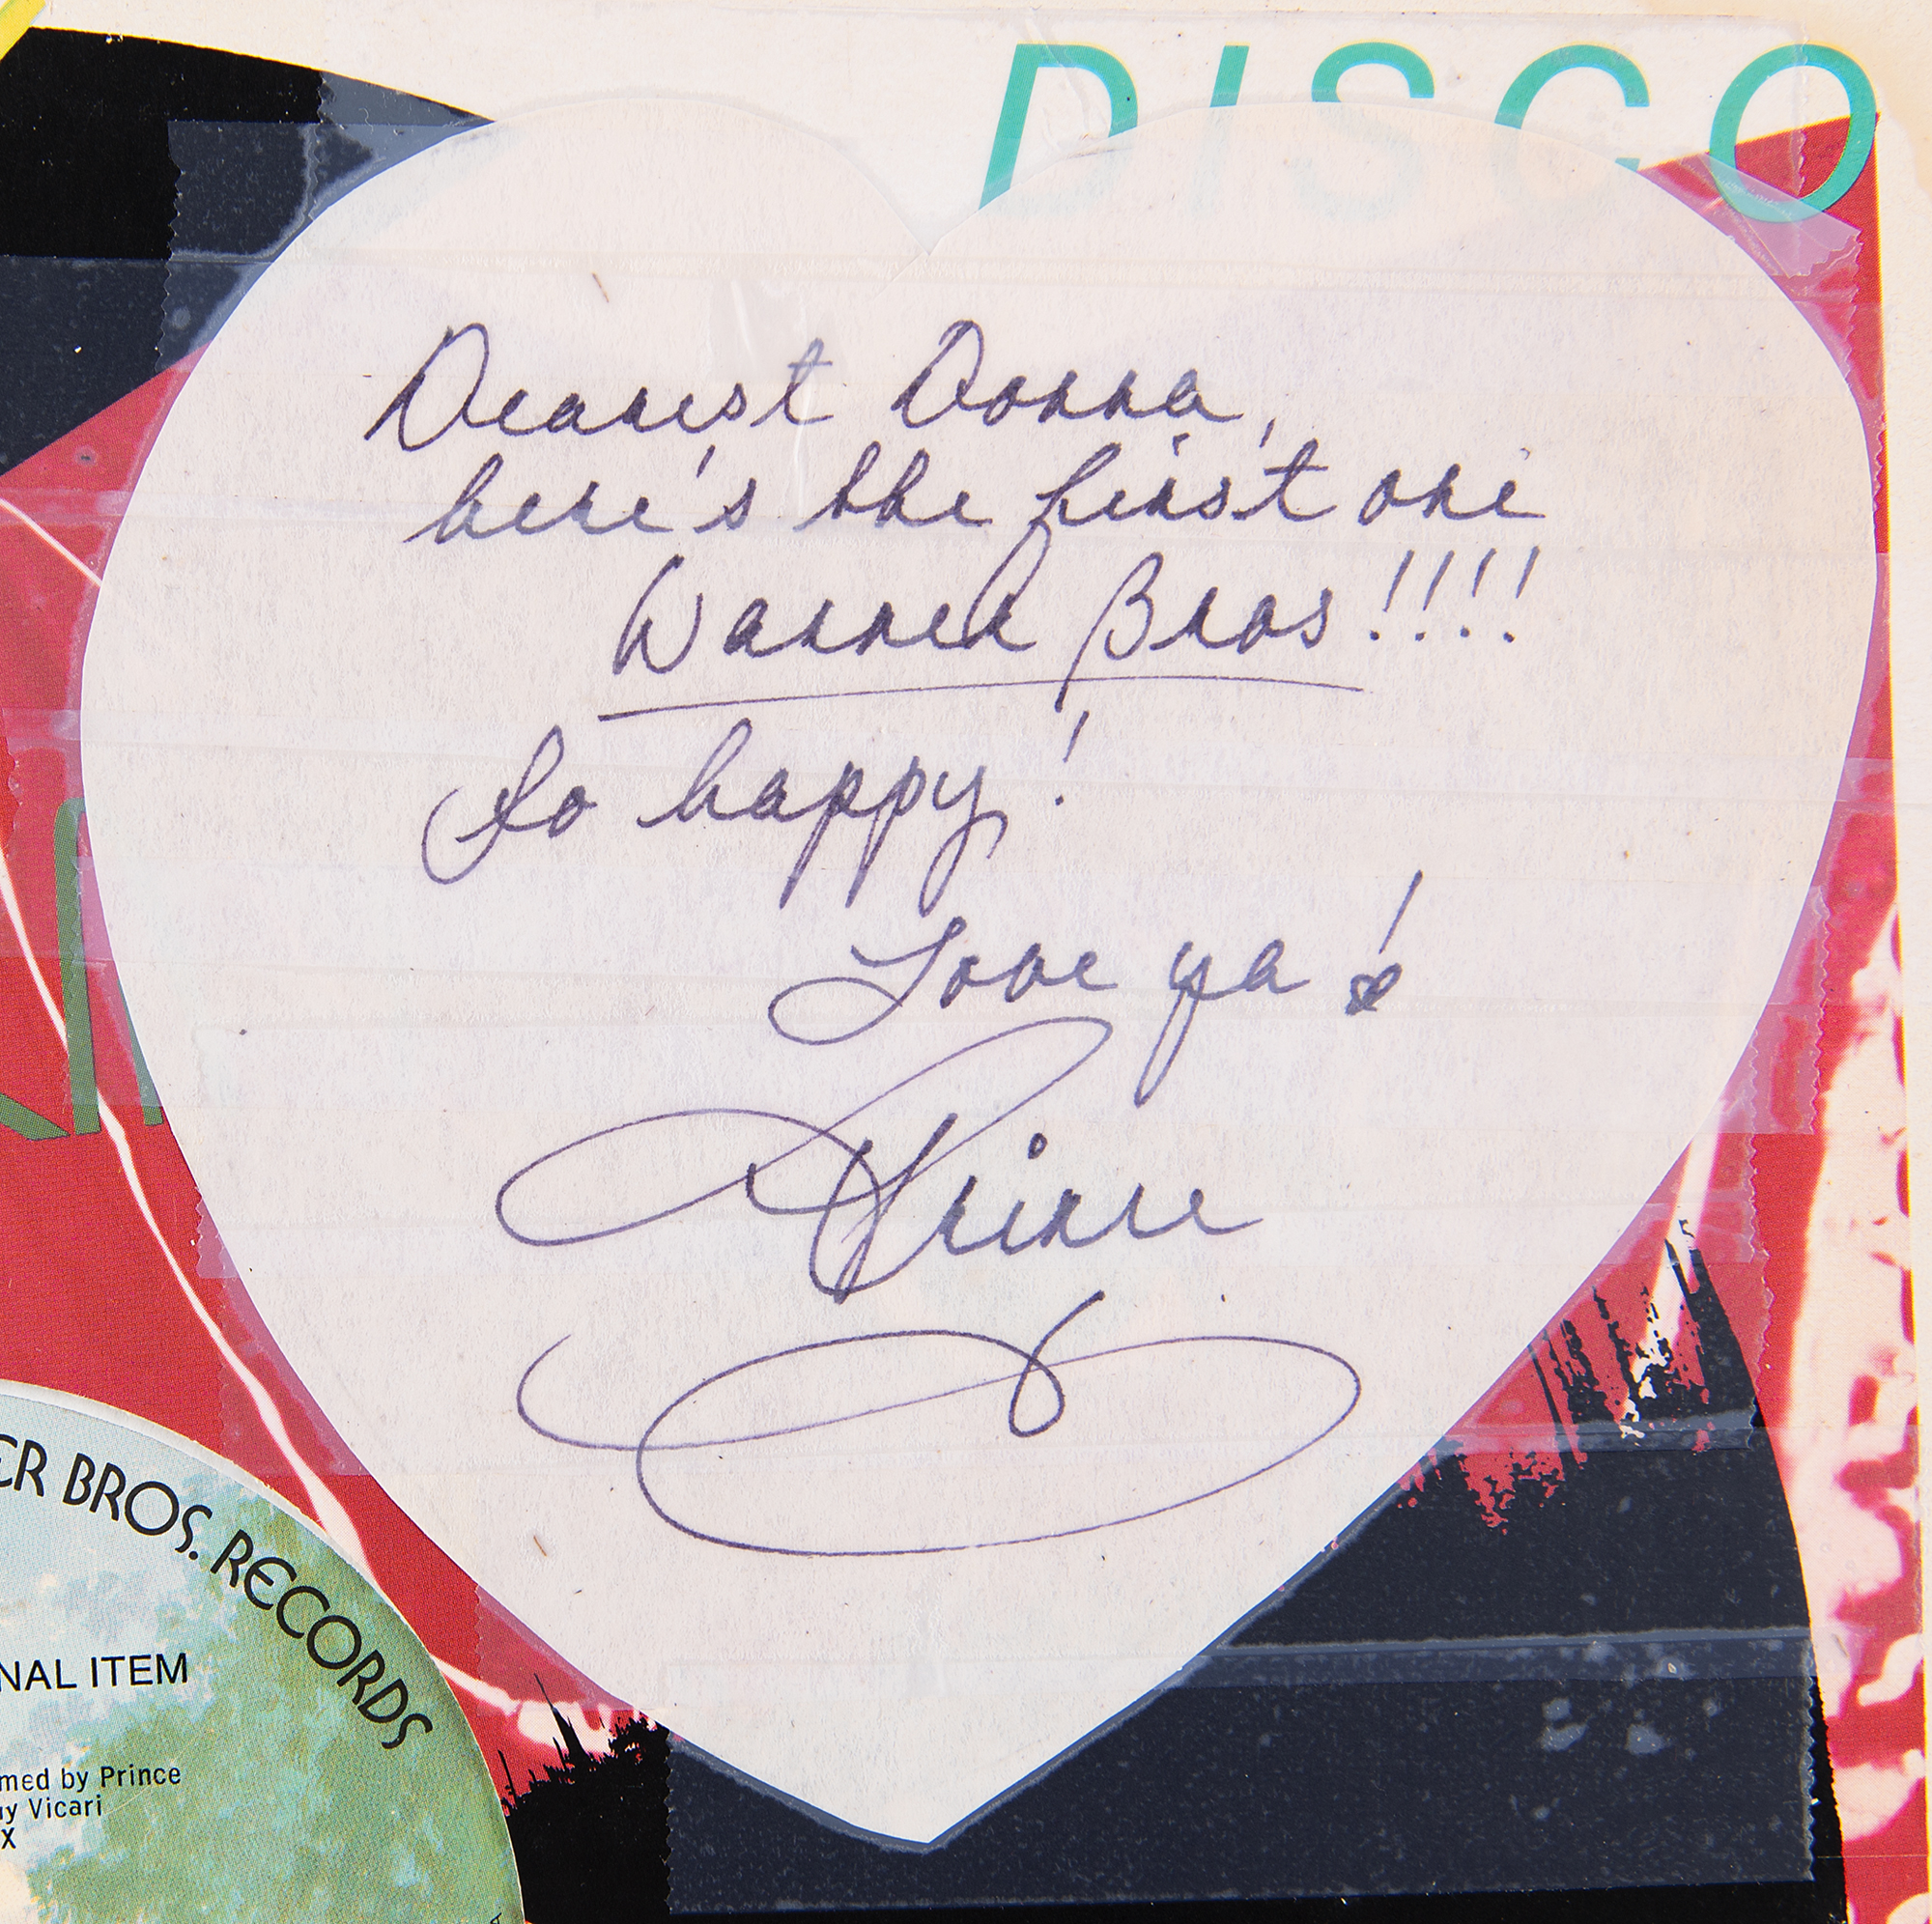 DISCO
Dearest Donna,
here's the first one
Warner Bros!!!!
So happy!
Love ya!
Prince
ER BROS. RECORDS
NAL ITEM
med by Prince
y Vicari
X